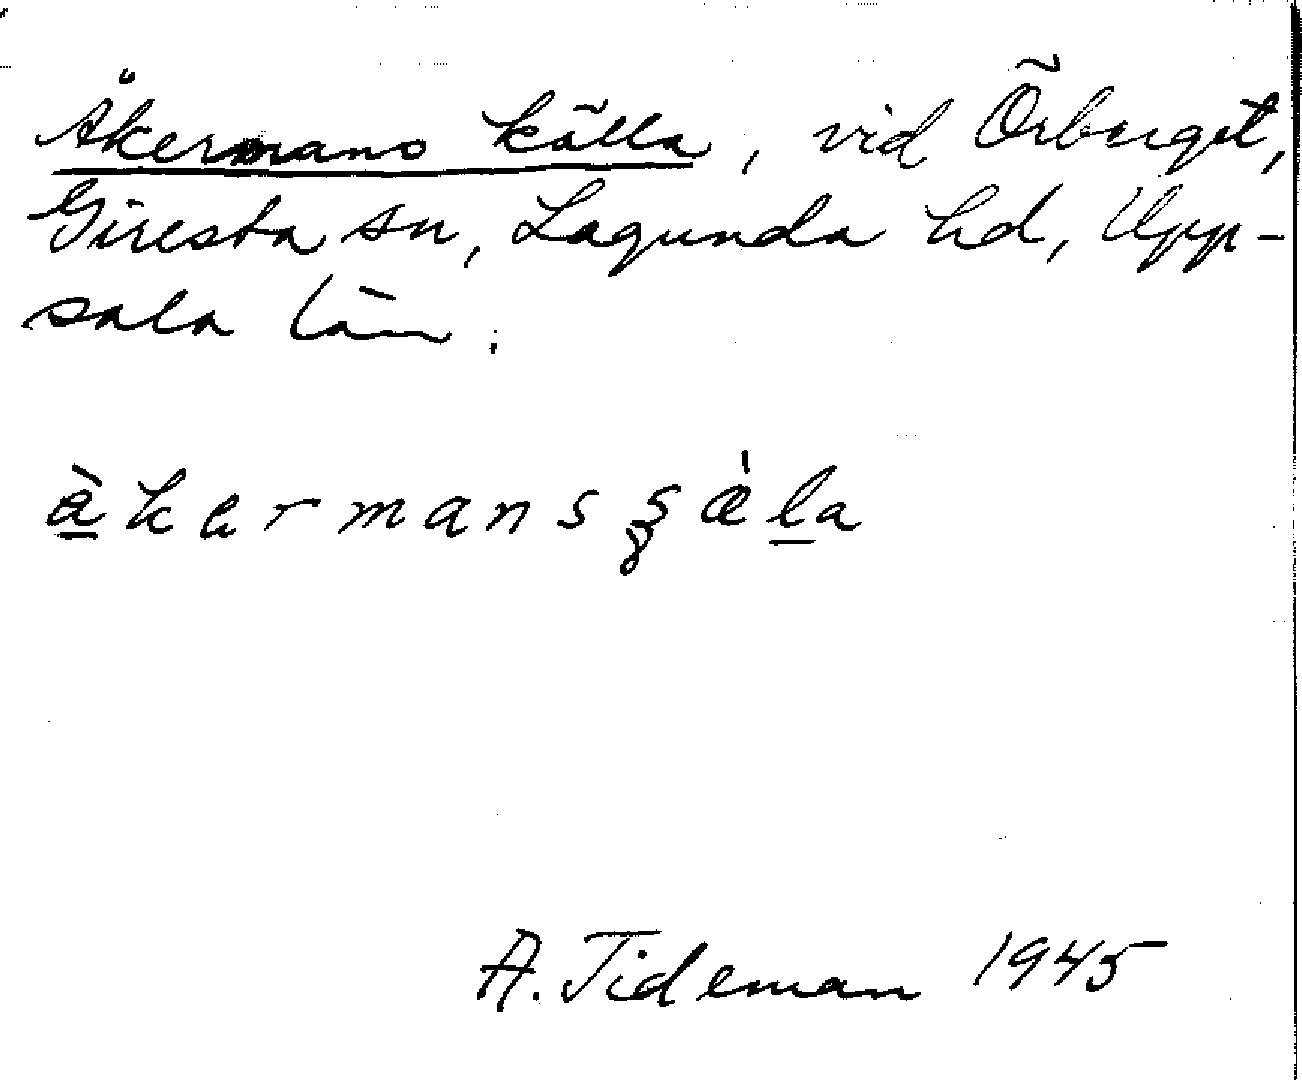 Åkermans källa, vid Örberget,
Giresta sn, Lagunda hd, Upp-
sala län.
A. Tideman 1945